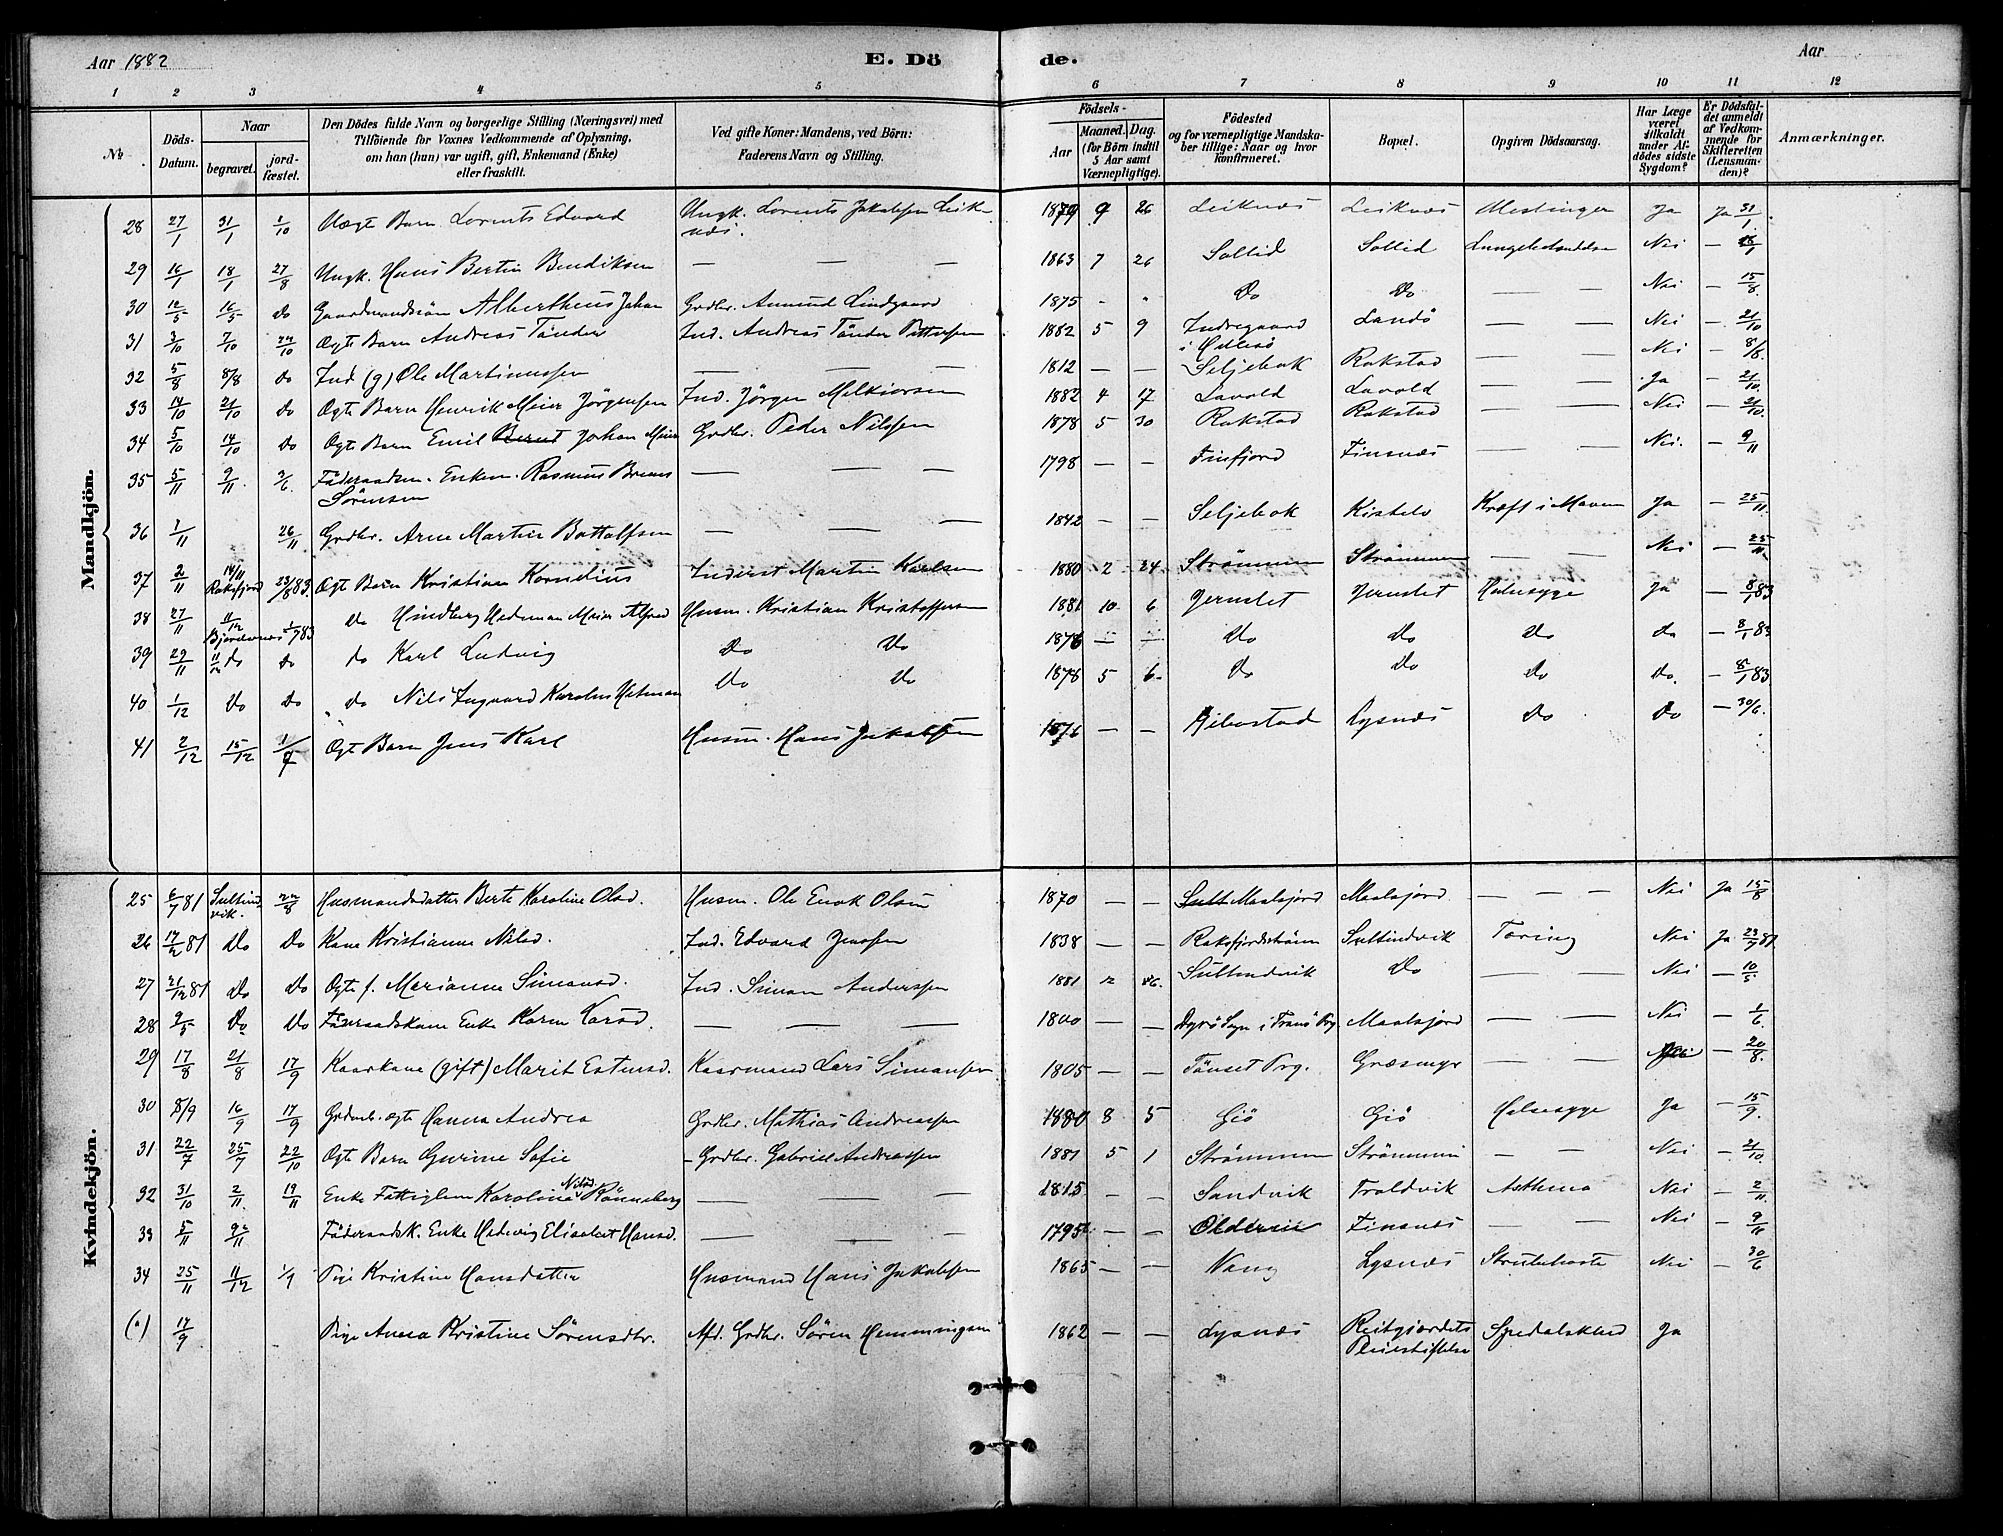 Aar 1882 E. Döde. Aar
1 2 3 4 5 6 7 8 9 10 11 12
No. Döds-Datum. Naar begravet. jordfæstet. Den Dödes fulde Navn og borgerlige Stilling (Næringsvei) med Tilföiende for Voxnes Vedkommende af Oplysning, om han (hun) var ugift, gift, Enkemand (Enke) eller fraskilt. Ved gifte Koner: Mandens, ved Börn: Faderens Navn og Stilling. Födsels- Aar Maaned. Dag. (for Börn indtil 5 Aar samt Værnepligtige). Födested og for værnepligtige Mandskaber tillige: Naar og hvor konfirmeret. Bopæl. Opgiven Dödsaarsag. Har Læge været tilkaldt under Afdödes sidste Sygdom? Er Dödsfaldet anmeldt af Vedkommende for Skifteretten (Lensmanden)? Anmærkninger.
Mandkjön.
28 27/1 31/1 1/10 Uægte Barn Lorents Edvard Ungk. Lorents Jakobsen Leiknes. 1879 9 26 Leiknes Leiknes Ja Ja 31/1
29 16/1 18/1 27/8 Ungk. Hans Bertin Bendiksen — — — 1863 7 26 Sollid Sollid Lungebetændelse Nei —
30 12/5 16/5 do Gaardmandssön Albertheus Johan Grdbr. Anmund Lindgaard 1875 - " Do Do — — Nei — 15/8
31 3/10 7/10 22/10 Ægte Barn Andreas Tönder Ind. Andreas Tönder Pettersen 1882 5 9 Indregaard i Hillesö Landö — — Nei — 21/10
32 5/8 8/8 do Ind (g) Ole Martinussen — — — 1812 — — Seljebak Rakstad — — Nei — 8/8
33 14/10 21/10 do Ægte Barn Henrik Meier Jörgensen Ind. Jörgen Melkiorsen 1882 4 17 Lavold Lavold — — Ja — 21/10
34 5/10 14/10 do Ægte Barn Emil Bernt Johan Meier Grdbr. Peder Nilssen 1878 5 30 Rakstad Rakstad — — Nei — 21/10
35 5/11 9/11 3/6 Föderaadsm. Enkem. Rasmus Sörensen — — — 1798 — — Finfjord Finsnes — — Nei. — 9/11
36 1/11 26/11 Grdbr. Arne Martin Bottolfsen — — — 1842 — — Seljebak Kistelv Kræft i Maven Ja — 25/11
37 2/11 14/11 Raksfjord 23/8 83. Ægt Barn Kristian Kornelius Inderst Martin Karlsen 1880 2 24 Strömmen Strömmen — — Nei — 25/11
38 27/11 11/12 1/7 83 do Hindberg Hedeman Meier Alfred Husm. Kristian Kristoffersen 1881 10 6 Jernslet Jernslet Halssyge Ja — 8/1 83
39 29/11 11/12 do do do Karl Ludvig Do Do 1876 — — Do Do Do do — 8/1 83
40 1/12 do Do " do Nils Ingvard Karolus Hetman Do Do 1878 5 6 Do Do Do do. — 8/1 83
41 2/12 15/12 1/7 Ægt Barn Jens Karl Husm. Hans Jakobsen 1876 — — Gibostad Lysnes Do Do — 30/6.
Kvindekjön.
25 6/7 81 Sultindvik. 22/8 Husmandsdatter Berte Karoline Olsd. Husm. Ole Enok Olsen 1870 — — Maalsjord Maalsjord — — — Nei Ja 15/8
26 17/2 81 Do Do Kone Kristianne Nilsd. Ind. Edvard Jenssen 1838 — — Raksfjordström Sultindvik Tæring Nei Ja 23/7 81
27 21/12 81 Do Do Ægte f. Marianne Simonsd. Ind. Simon Anderssen 1881 12 Sultindvik Do — — Nei — 10/5
28 9/5 Do Do Föderaadskone Enke Karen Larsd. — — — 1800 — — Dyrö Sgn i Tranö Prg. Maalsjord — — Nei — 1/6
29 17/8 21/8 17/9 Kaarkone (gift) Marit Estensd. Kaarmand Lars Simonsen 1805 — — Tönset Prg. Græsmyr — — Nei — 20/8
30 8/9 16/9 17/9 Grdmd. ægte Hanna Andrea Grdbr. Mathias Andreassen 1880 8 5 Giö Giö Halssyge Ja — 15/9
31 22/7 25/7 22/10 Ægte Barn Gurine Sofie Grdbr. Gabriel Andreassen 1881 5 1 Strömmen Strömmen — — Nei — 21/10
32 31/10 2/11 19/11 Enke Fattiglem Karolina Nilsd. Rönneberg — — — 1815 — — Sandvik Troldvik Asthma Nei — 2/11
33 5/11 Föderaadsk. Enke Hedevig Elisabet Hansd. — — — 1795 — — Oldervik Finsnes — — Nei — 9/11
34 25/11 11/12 1/7 Pige Kristine Hansdatter Husmand Hans Jakobsen 1865 — — Vang Lysnes Strubehoste Nei — 30/6
17/9 Pige Anna Kristine Sörensdtr. Afd. Grdbr. Sören Hemmingsen 1862 — — Lysnes Reitgjærdets Pleiestiftelse Spedalskhed Ja